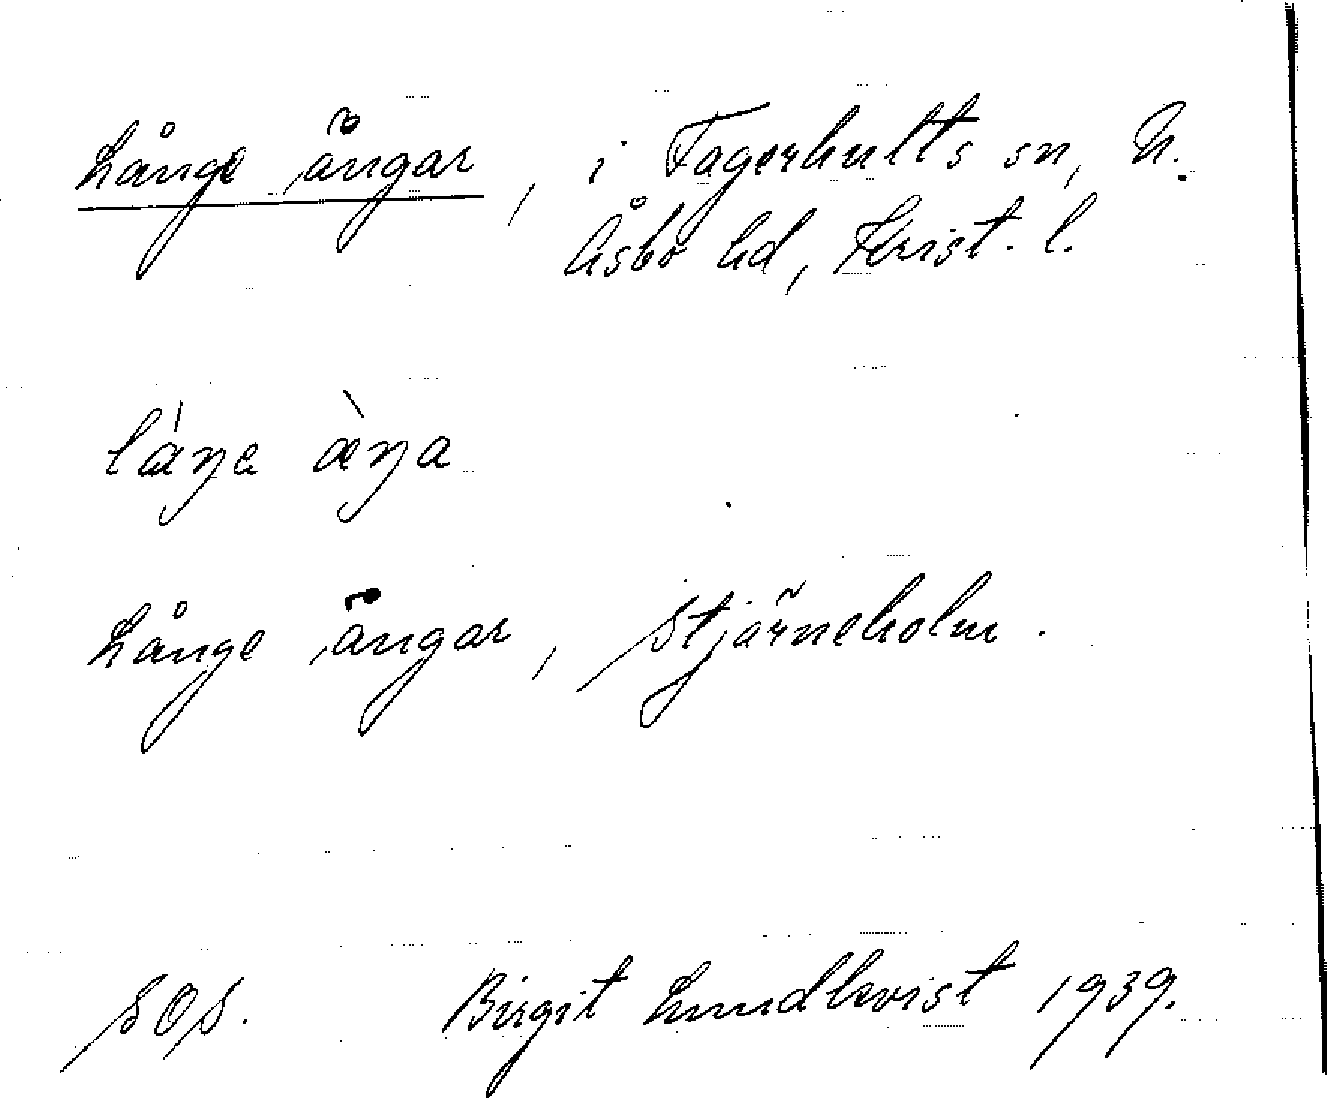 Långe ängar, i Fagerhults sn, N.
Åsbo hd, Krist. l.
láŋe æ̀ŋa
Långe ängar, Stjärneholm.
SOS. Birgit Lundkvist 1939.